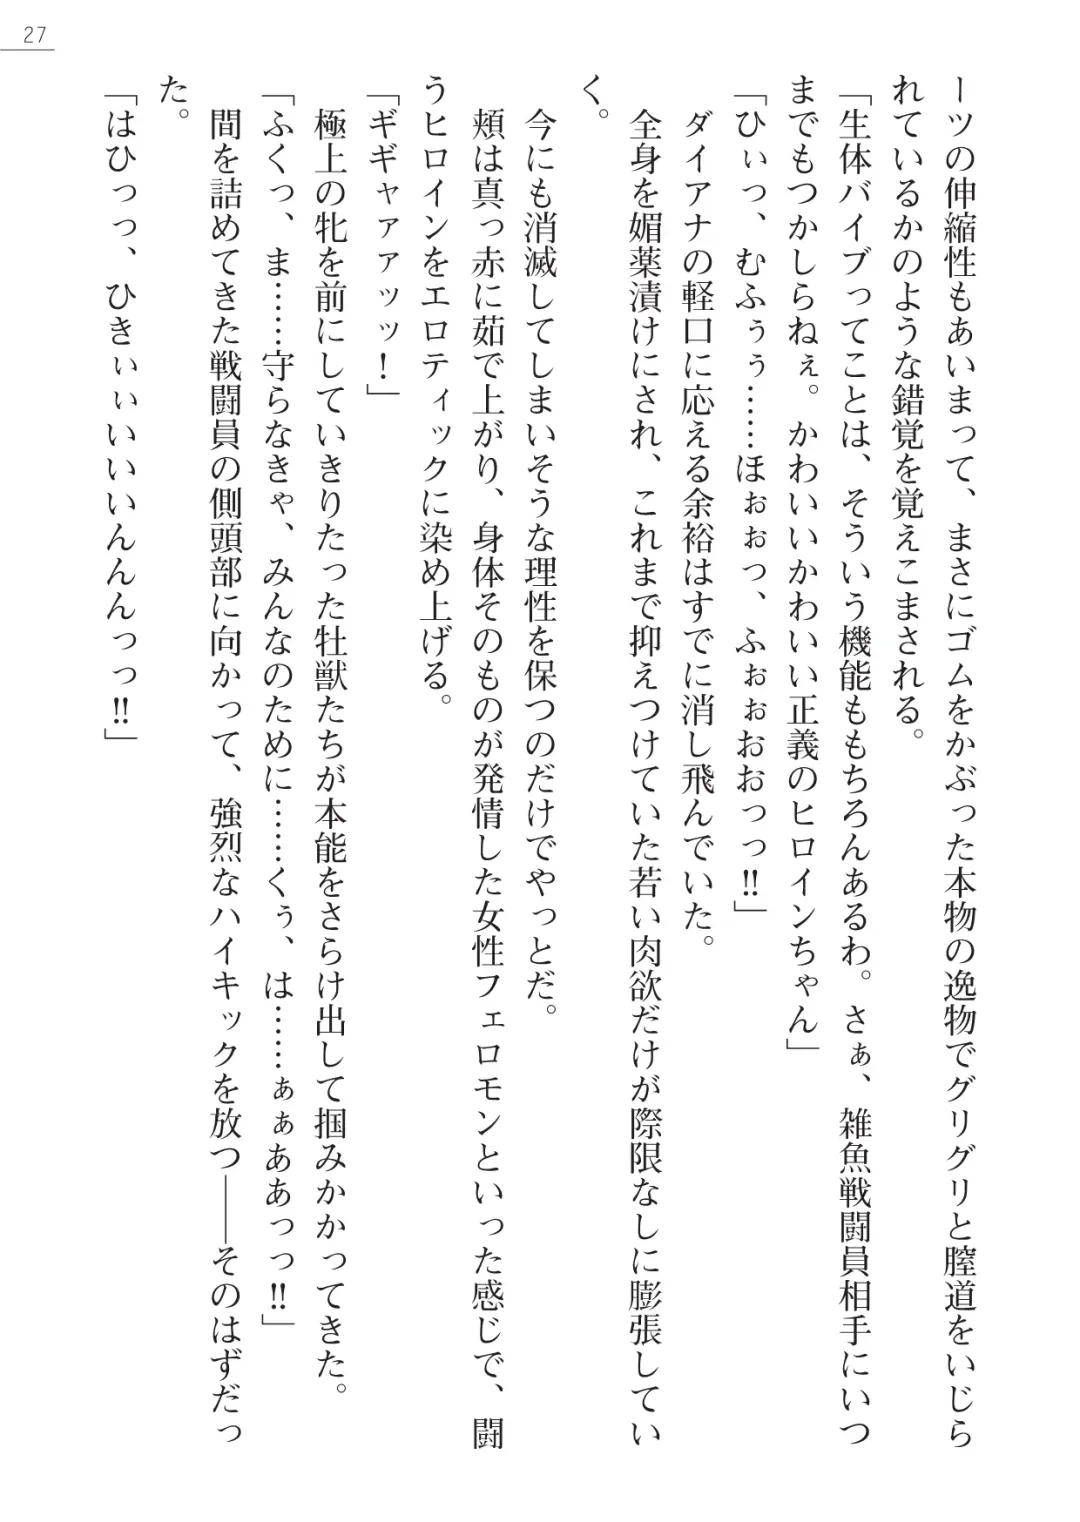 27
ーツの伸縮性もあいまって、まさにゴムをかぶった本物の逸物でグリグリと膣道をいじら
れているかのような錯覚を覚えこまされる。
「生体バイブってことは、そういう機能ももちろんあるわ。さぁ、雑魚戦闘員相手にいつ
までもつかしらねぇ。かわいいかわいい正義のヒロインちゃん」
「ひぃっ、むふぅぅ……ほぉぉっ、ふぉぉおおっっ‼」
ダイアナの軽口に応える余裕はすでに消し飛んでいた。
全身を媚薬漬けにされ、これまで抑えつけていた若い肉欲だけが際限なしに膨張してい
く。
今にも消滅してしまいそうな理性を保つのだけでやっとだ。
頬は真っ赤に茹で上がり、身体そのものが発情した女性フェロモンといった感じで、闘
うヒロインをエロティックに染め上げる。
「ギギャァァッッ！」
極上の牝を前にしていきりたった牡獣たちが本能をさらけ出して掴みかかってきた。
「ふくっ、ま……守らなきゃ、みんなのために……くぅ、は……ぁぁああっっ‼」
間を詰めてきた戦闘員の側頭部に向かって、強烈なハイキックを放つ――そのはずだっ
た。
「はひっっ、ひきぃぃいいいんんんっっ‼」